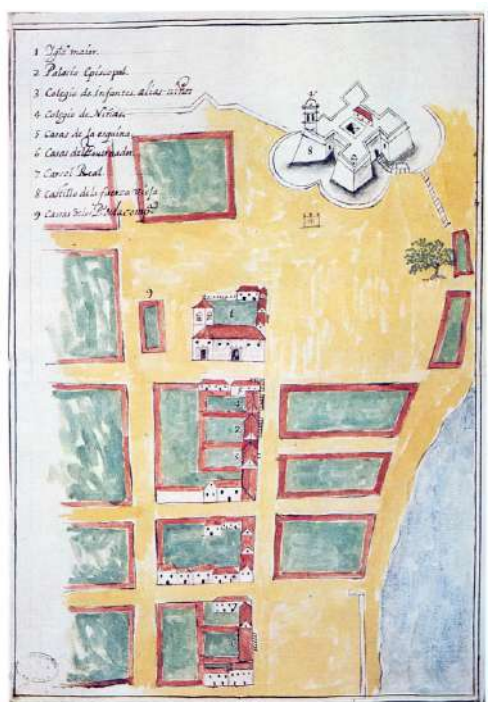 1 Yglᵃ maior.
2 Palacio Episcopal.
3 Colegio de Infantes alias niños
4 Colegio de Niñas.
5 Casas de la esquina
6 Casas del
7 Carcel Real
8 Castillo de la fuerza vieja
9 Casas
9
8
1
3
2
5